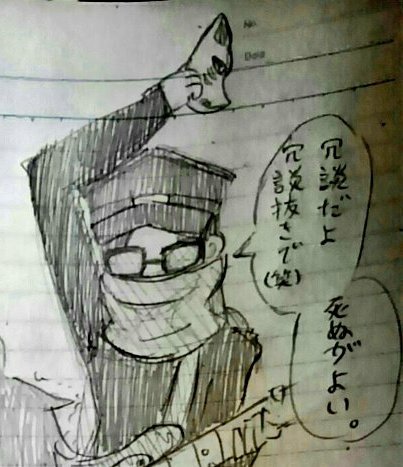 No.
Date
冗説だよ
冗説抜きで(笑)
死ぬがよい。